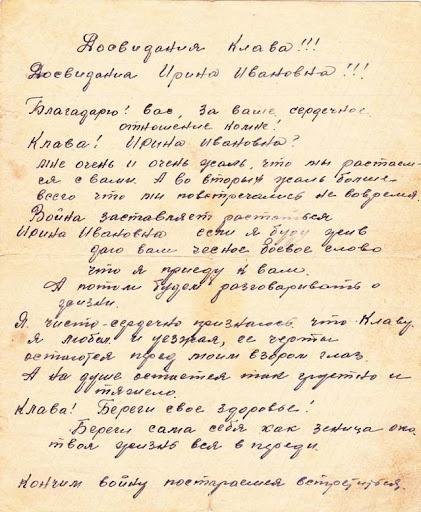 Досвидания Клава!!!
Досвидания Ирина Ивановна!!!
Благадарю! вас, за ваше сердечное
отношение комне!
Клава! Ирина Ивановна?
мне очень и очень жаль, что мы растаем-
ся с вами. А во вторых жаль больше
всего что мы повстречались не вовремя.
Война заставляет растаться
Ирина Ивановна если я буду жив
даю вам чесное боевое слово
что я приеду к вам.
А потом будем разговаривать о
жизни.
Я чисто-сердечно признаюсь, что Клаву
я любил и уезжая, ее черты
остаются перед моим взором глаз.
А на душе остается так грустно и
тяжело.
Клава! Береги свое здоровье!
Береги сама себя как зеница ока
твоя жизнь вся в переди.
Кончим войну постараемся встретиться.